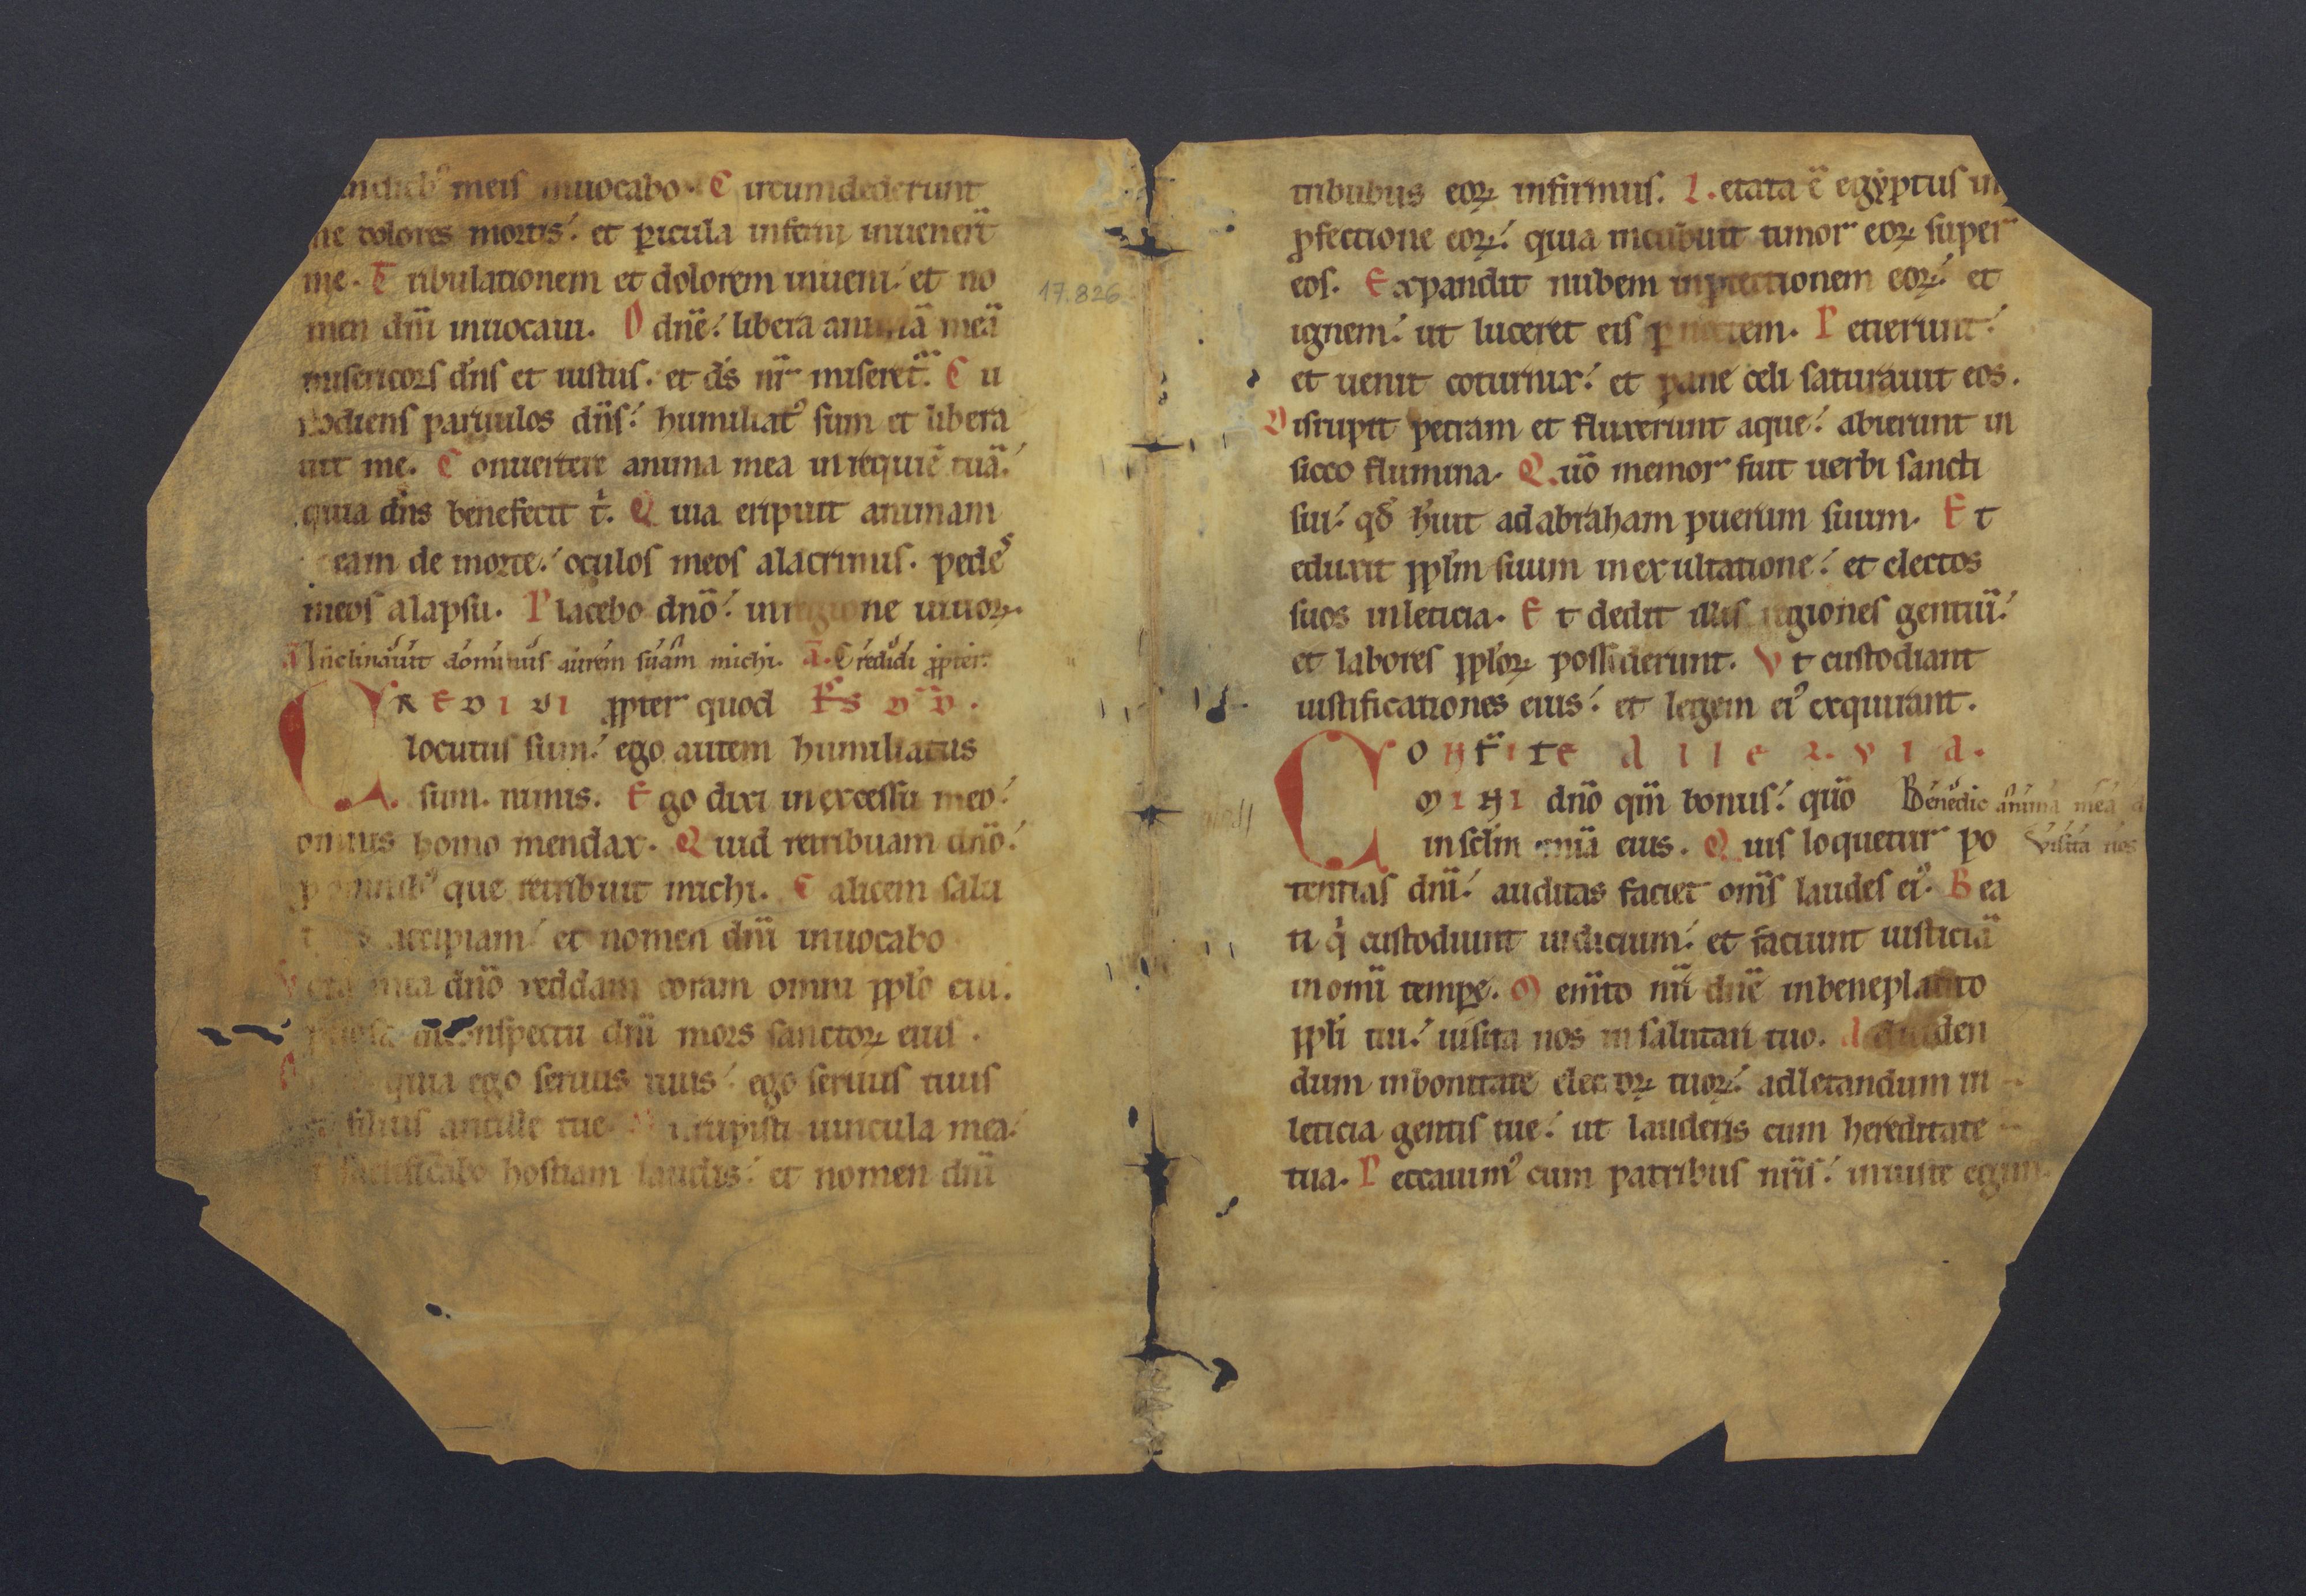 meis inuocabo. Circumdederunt
me dolores mortis: et ꝑicula inferni inuenerūt
me. Tribulationem et dolorem inueni: et no
men dn̄i inuocaui. O dn̄e: libera animā meā
misericors dn̄s et iustus. et ds̄ nr̄ miseret᷑. Cu
stodiens paruulos dn̄s: humiliatꝰ sum et libera
uit me. Conuertere anima mea in requiē tuā:
quia dn̄s benefecit t̍. Quia eripuit animam
meam de morte: oculos meos a lacrimis. pedes
meos a lapsu. Placebo dn̄o: in regione uiuoꝝ.
ā Inclinauit dominus aurem suam michi. ā. Credidi ꝓpter.
CREDIDI ꝓpter quod
locutus sum: ego autem humiliatus
sum nimis. Ego dixi in excessu meo:
omnis homo mendax. Quid retribuam dn̄o:
ꝓ omnibꝰ que retribuit michi. Calicem salu
accipiam: et nomen dn̄i inuocabo
mea dn̄o reddam coram omni ꝓplo eiu.
in conspectu dn̄i mors sanctoꝝ eius.
quia ego seruus tuus: ego seruus tuus
filius ancille tue. Dirupisti uincula mea:
sacrificabo hostiam laudis: et nomen dn̄i
17.826
tribubus eoꝝ infirmus. Letata ē egẏptus in
ꝓfectione eoꝝ: quia incubuit timor eoꝝ super
eos. Expandit nubem in ꝓtectionem eoꝝ: et
ignem: ut luceret eis ꝑ noctem. Petierunt:
et uenit coturnix: et pane celi saturauit eos.
Disrupit petram et fluxerunt aque: abierunt in
sicco flumina. Quō memor fuit uerbi sancti
sui: qđ h̄uit ad abraham puerum suum. Et
eduxit ꝓplm suum in exultatione: et electos
suos in leticia. Et dedit illis regiones gentiū:
et labores ꝓploꝝ possiderunt. Vt custodiant
iustificationes eius: et legem eiꝰ exquirant.
CONFITE alleluia.
MINI dn̄o qm̄ bonus: quō
Benedic anima mea
in sclm mia eius. Quis loquetur po
visita nos
tentias dn̄i: auditas faciet om̄s laudes eiꝰ. Bea
ti q̍ custodiunt iudicium: et faciunt iusticiā
in om̄i tempꝑe. Mem̄to nr̄i dn̄e in beneplacito
ꝓpli tui: uisita nos in salutari tuo. Ad uiden
dum in bonitate electoꝝ tuoꝝ: ad letandum in
leticia gentis tue: ut lauderis cum hereditate
tua. Peccauimꝰ cum patribus nr̄is: iniuste egim